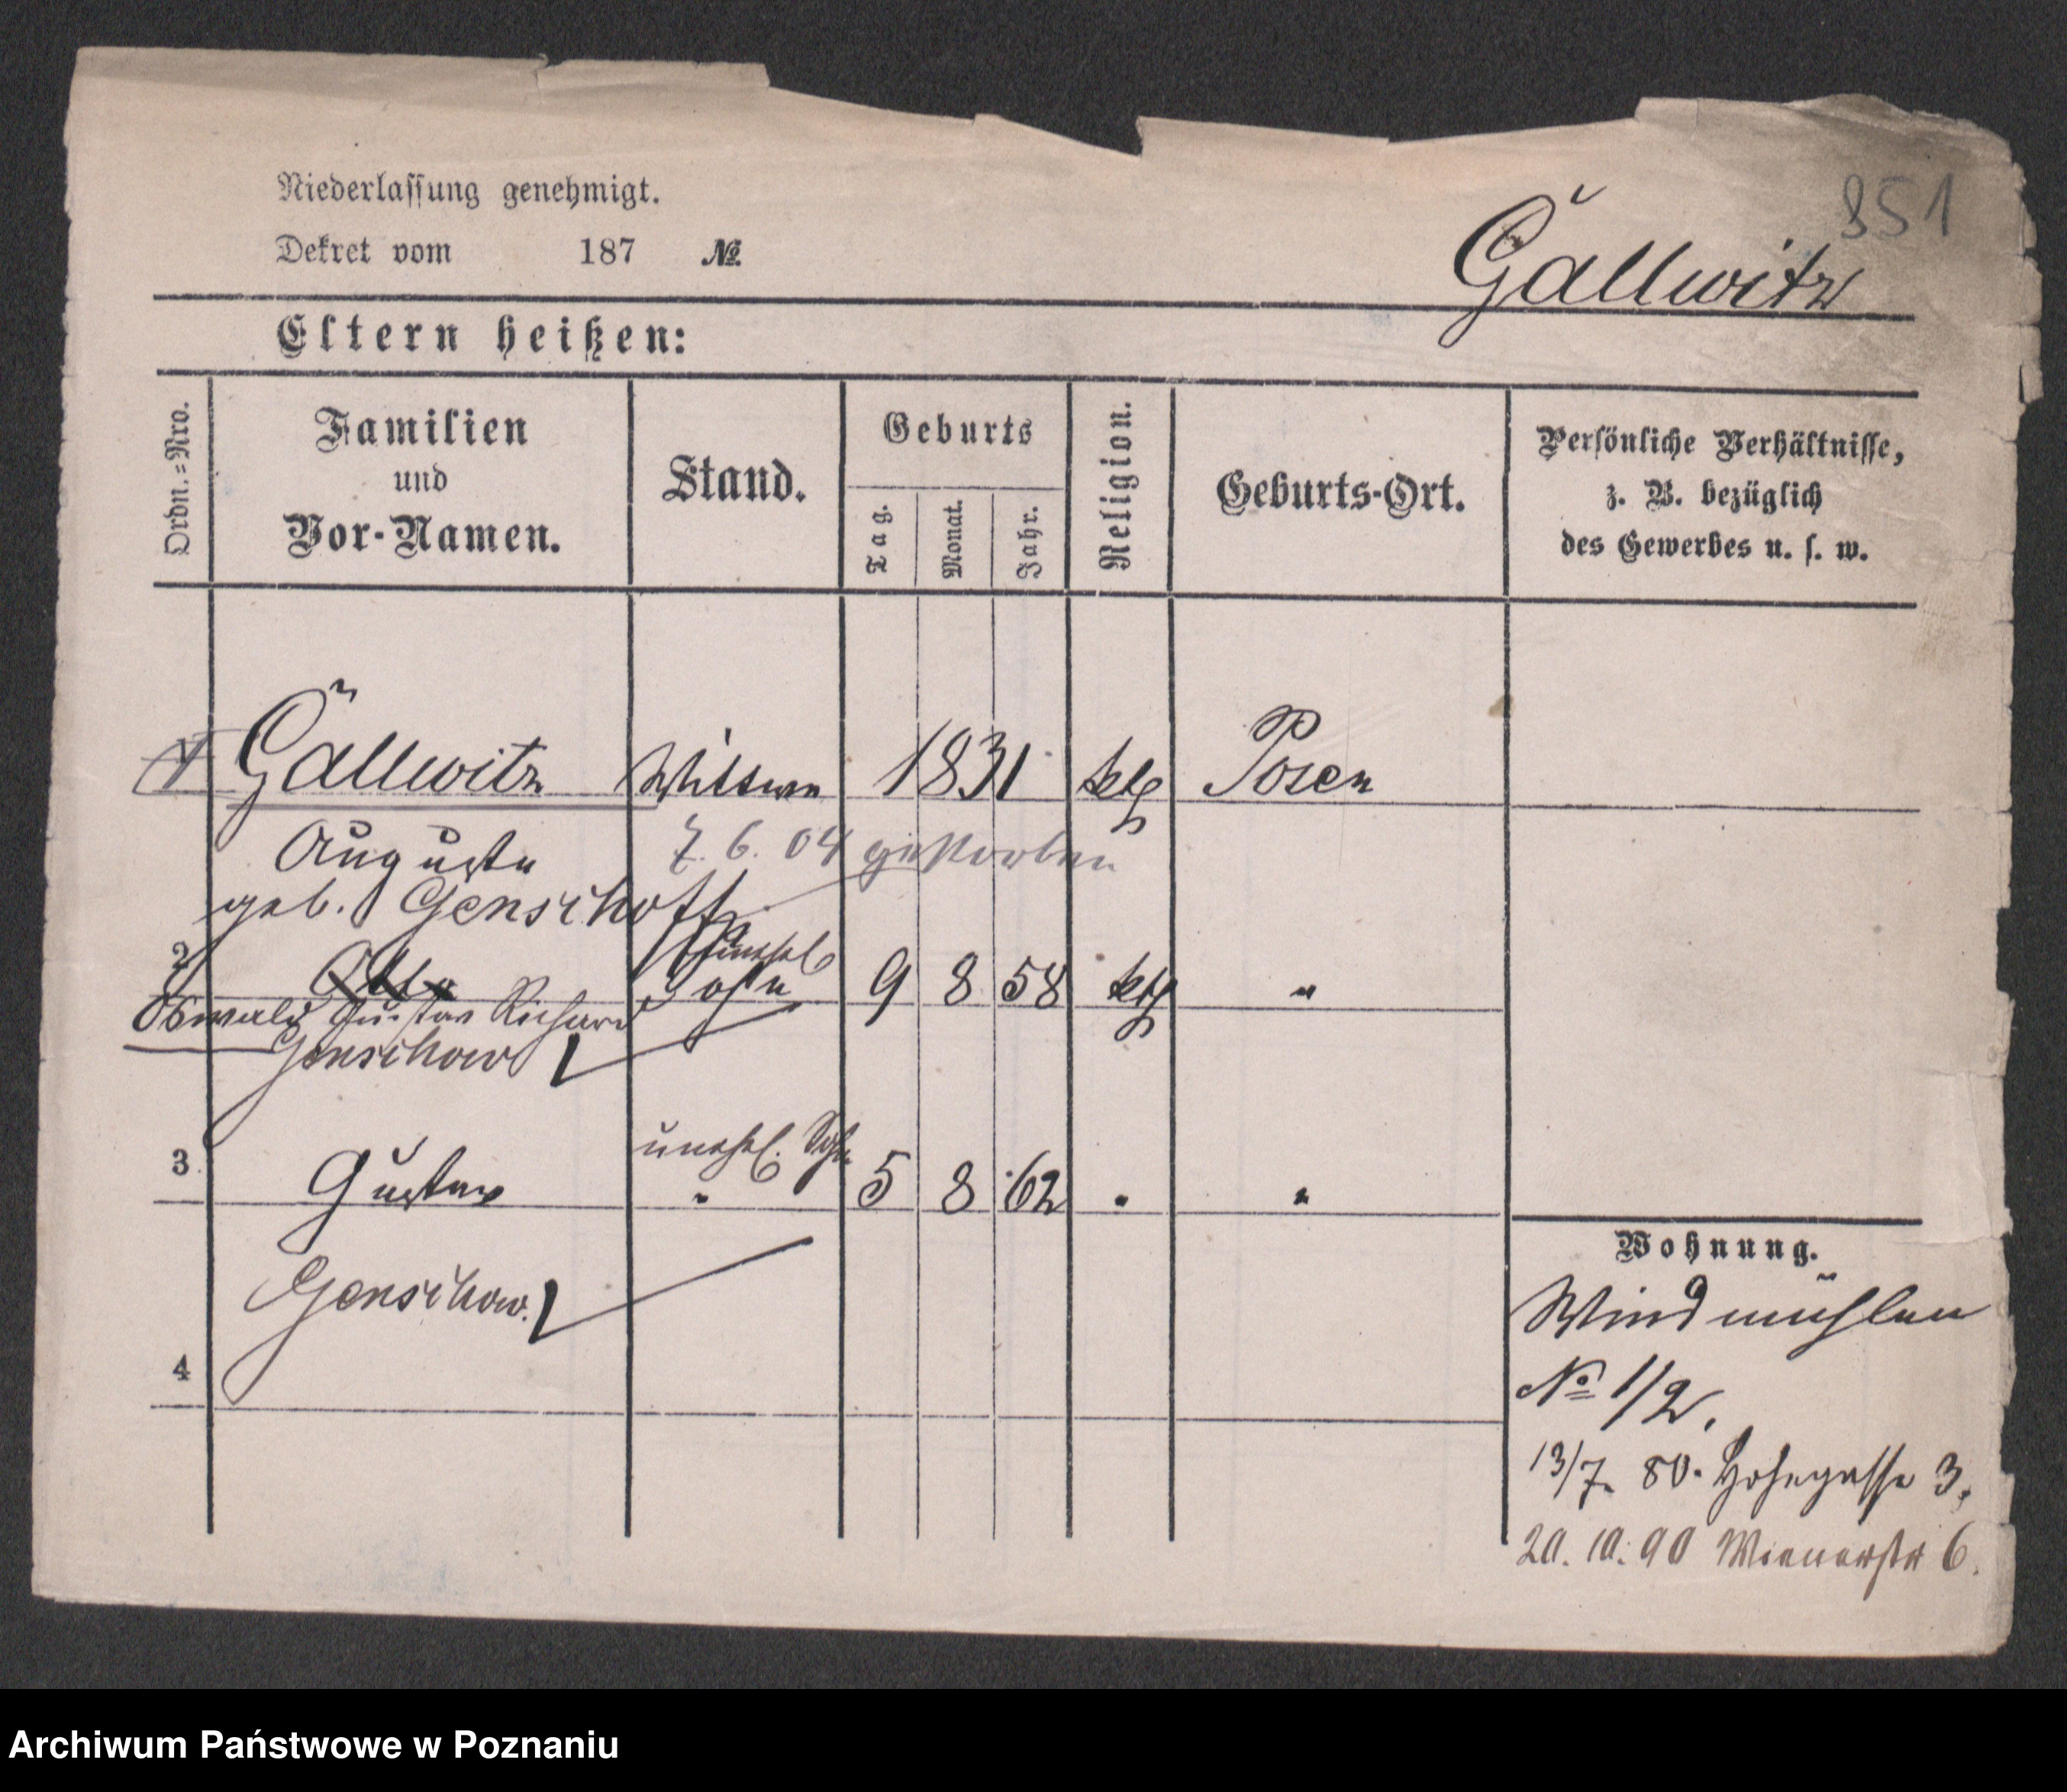 Niederlassung genehmigt.
Dekret vom 187 №.
851
Gallwitz
Eltern heißen:
Ordn.=Nro.
Familien
und
Vor-Namen.
Stand.
Geburts
Tag.
Monat.
Jahr.
Religion.
Geburts-Ort.
Persönliche Verhältnisse,
z. B. bezüglich
des Gewerbes u. s. w.
1 Gallwitz Wittwe 1831 kth Posen
Auguste 7. 6. 04 gestorben
geb. Genschoff
2 Otto unehel Sohn 9 8 58 kth "
Oswald Gustav Richard
Genschow
3 Gustav unehl. Sohn " 5 8 62 " "
Genschow.
4
Wohnung.
Windmühlen
No 1/2.
13/7. 80. Hohegasse 3,
20. 10. 90 Wienerstr 6.
Archiwum Państwowe w Poznaniu